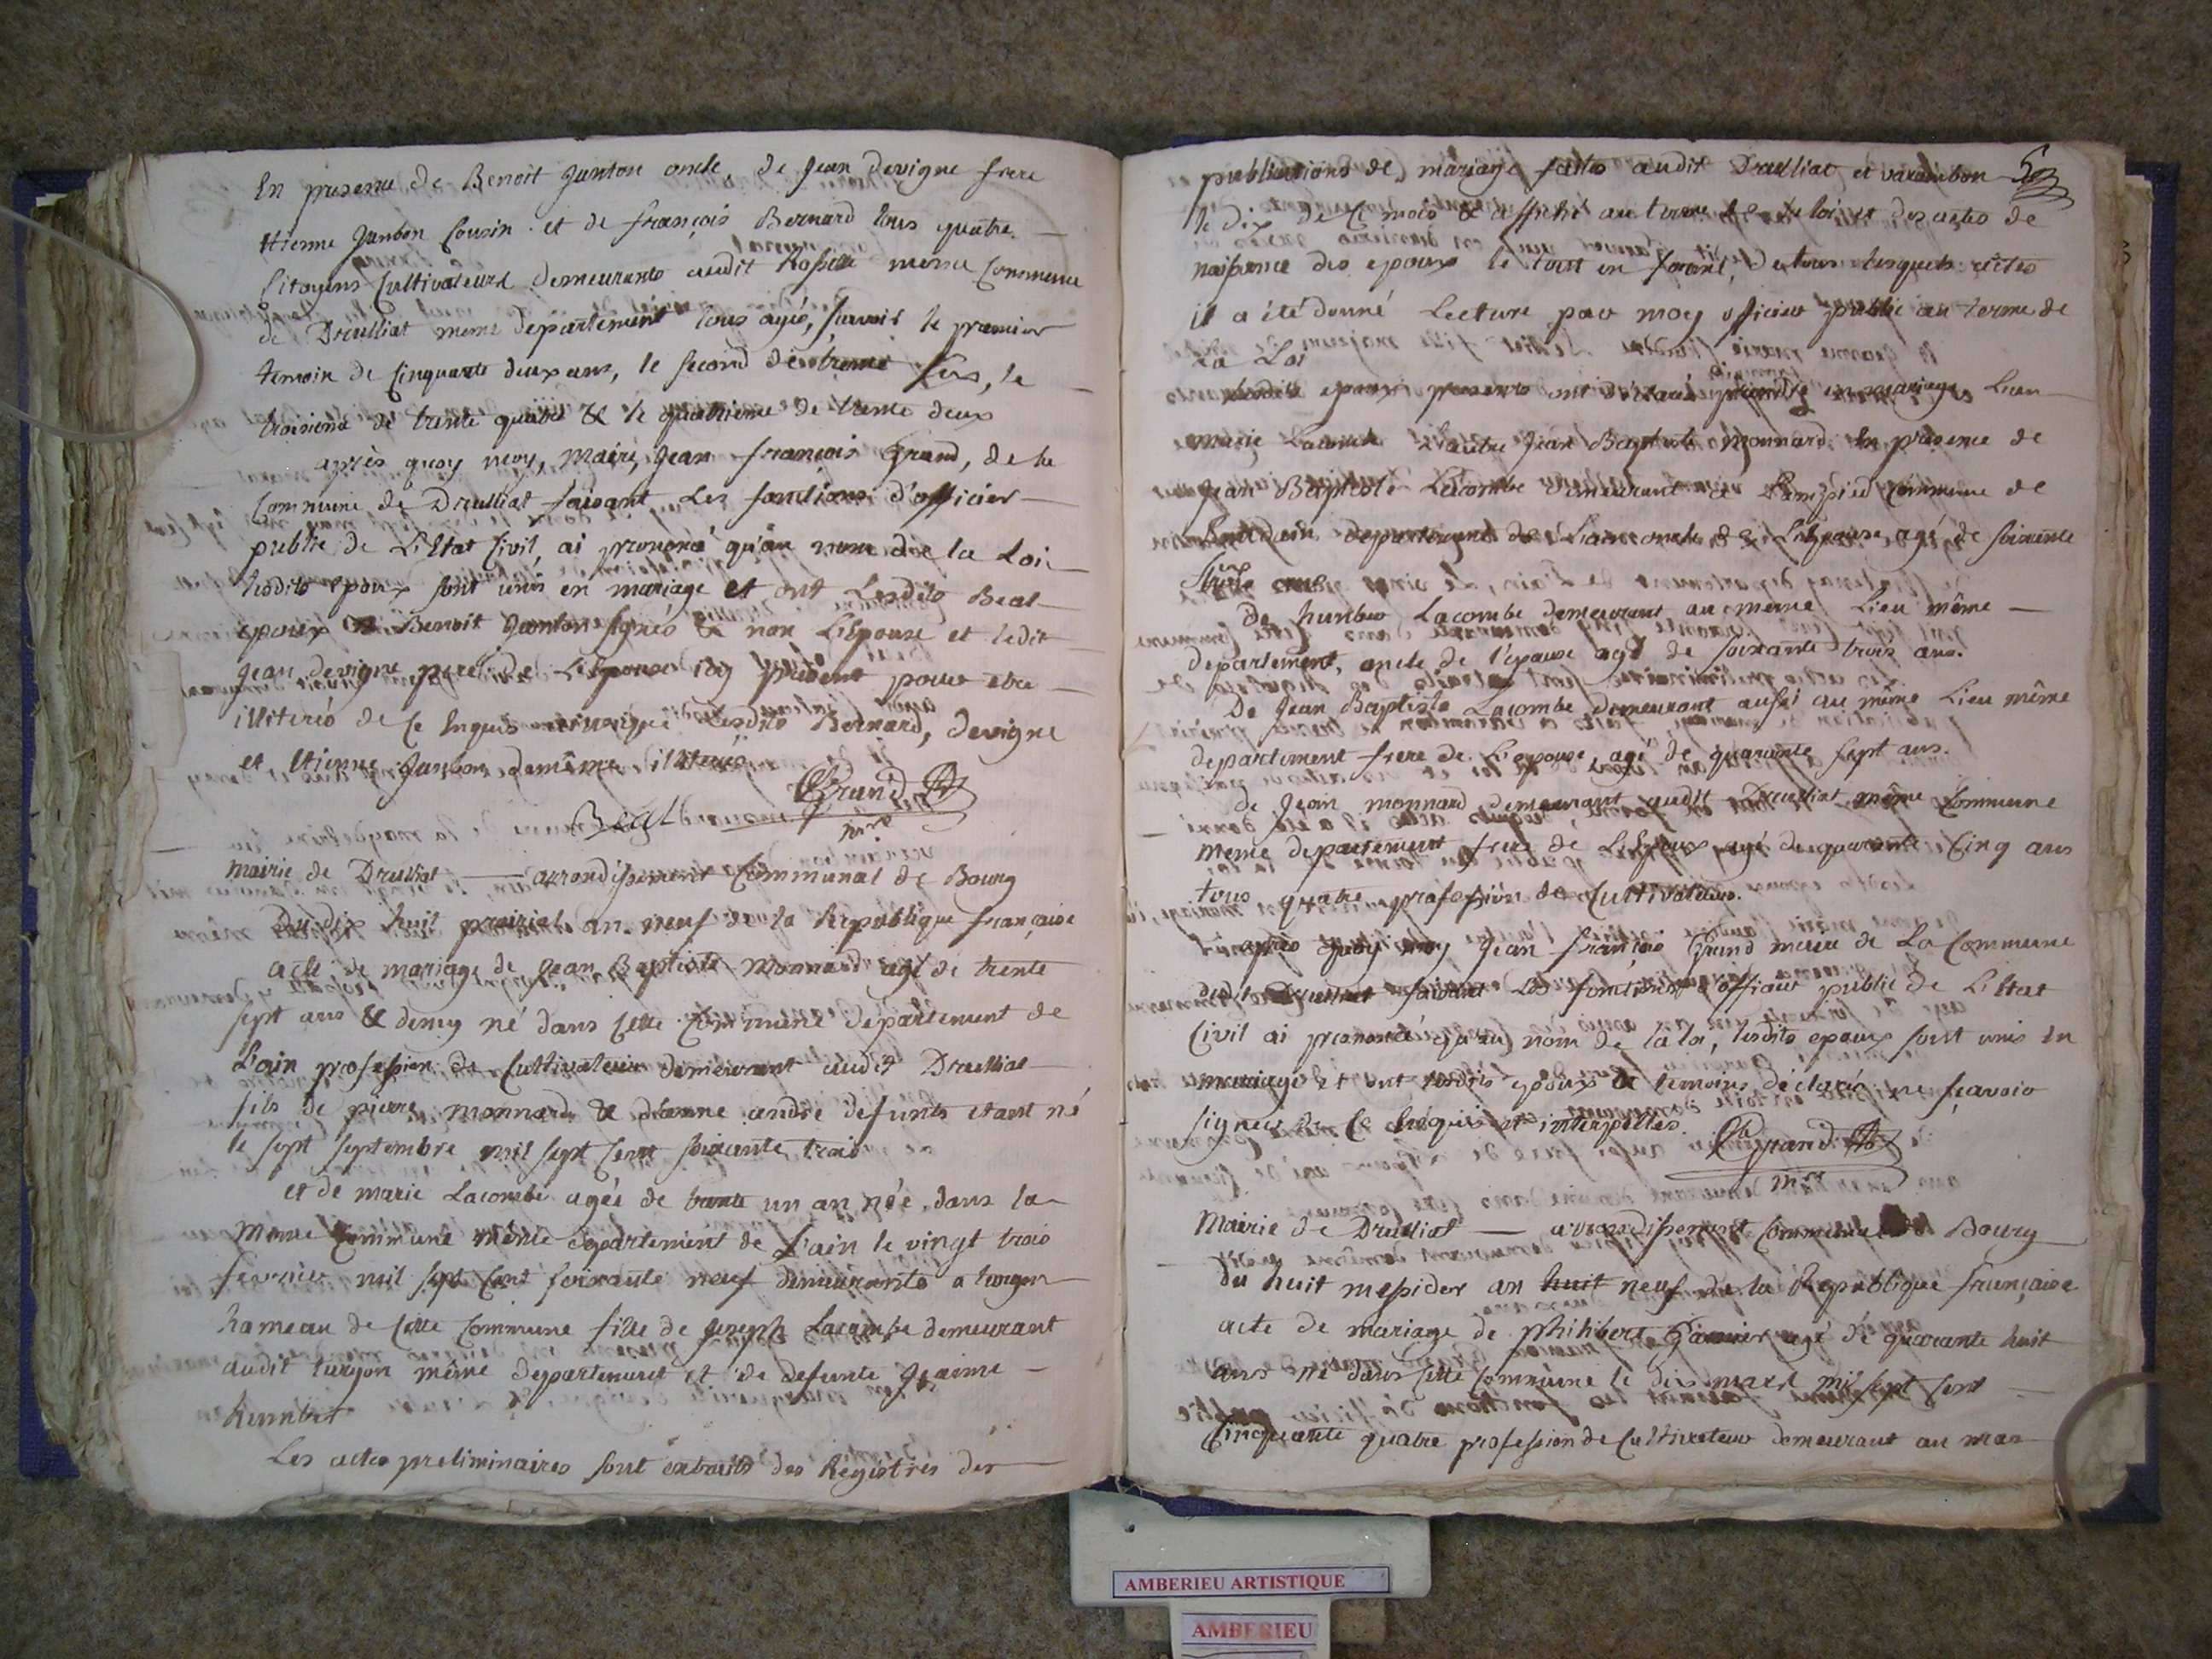 En presence de Benoit Janton oncle, de Jean devigne frere
Etienne Janton Cousin et de françois Bernard tous quatre
Citoyens Cultivateurs demeurants audit Rossette meme Commune
de Druillat meme departement tous agés, savoir le premier
temoin de Cinquante deux ans, le second de trente six, le
troisieme de trente quatre & le quatrieme de trente deux
après quoy moy, maire, Jean françois Grand, de la
Commune de Druillat faisant Les fonctions d'officier
public de L'Etat Civil, ai prononcé qu'au nom de la Loi
lesdits epoux sont unis en mariage et ont Lesdits Beal
epoux & Benoit Janton signés & non L'Epouse et ledit
Jean devigne pere de L'Epouse icy présent pour etre
illiterés de Ce Enquis Lesdits Bernard, devigne
et Etienne Janton demême illiterés
Beal Grand
mre
Mairie de Druillat — arrondissement Communal de Bourg
Du dix huit prairial an neuf de la Republique française
acte de mariage de Jean Baptiste Monnard agé de trente
sept ans & demy né dans cette Commune departement de
L'ain profession de Cultivateur demeurant audit Druillat
fils de pierre monnard & d'anne andré defunts etant né
le sept septembre mil sept cent soixante trois
et de marie Lacombe agée de trente un an née dans la
meme Commune même departement de L'ain le vingt trois
fevrier mil sept cent soixante neuf demeurante a turgon
hameau de Cette Commune fille de Joseph Lacombe demeurant
audit turgon même departement et de defunte
humbert
Les actes preliminaires sont extraits des Registres des
publications de mariage faites audit Druillat et varambon 53
le dix de Ce mois & affiché au terme de la loi et des actes de
naissance des epoux le tout en forme, de tous lesquels actes
il a été donné Lecture par moy officier public au terme de
La Loi
Lesdits epoux presents ont déclaré prendre en mariage L'un
marie Lacombe L'autre Jean Baptiste Monnard En présence de
Jean Baptiste Lacombe demeurant a Commune de
departement de L'ain oncle de L'Epouse agé de soixante
ans
de humber Lacombe demeurant au meme Lieu même
departement, oncle de l'epouse agé de soixante trois ans.
De Jean Baptiste Lacombe demeurant aussi au même Lieu même
departement frere de L'epouse, agé de quarante sept ans.
de Jean monnard demeurant audit Druillat même Commune
meme departement frere de L'Epoux agé de quarante Cinq ans
tous quatre profession de Cultivateurs.
après quoy moy Jean françois Grand maire de La Commune
dudit Druillat faisant Les fonctions d'officier public de L'Etat
Civil ai prononcé qu'au nom de la loi, lesdits epoux sont unis en
mariage et ont lesdits epoux & temoins déclarés ne sçavoir
signer de Ce Enquis et interpellés. Grand
mre
Mairie de Druillat — arrondissement Communal de Bourg
du huit messidor an huit neuf de la Republique française
acte de mariage de philibert agé de quarante huit
ans né dans Cette Commune le dix mars mil sept cent
Cinquante quatre profession de Cultivateur demeurant au mas
AMBERIEU ARTISTIQUE
AMBERIEU